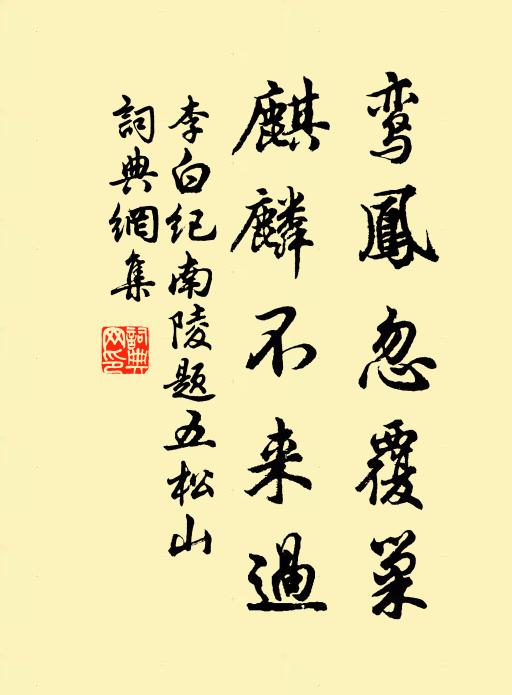 鸾鳳忽覆巢
麒麟不来過
李白纪南陵题五松山
詞典網集
詞典網印